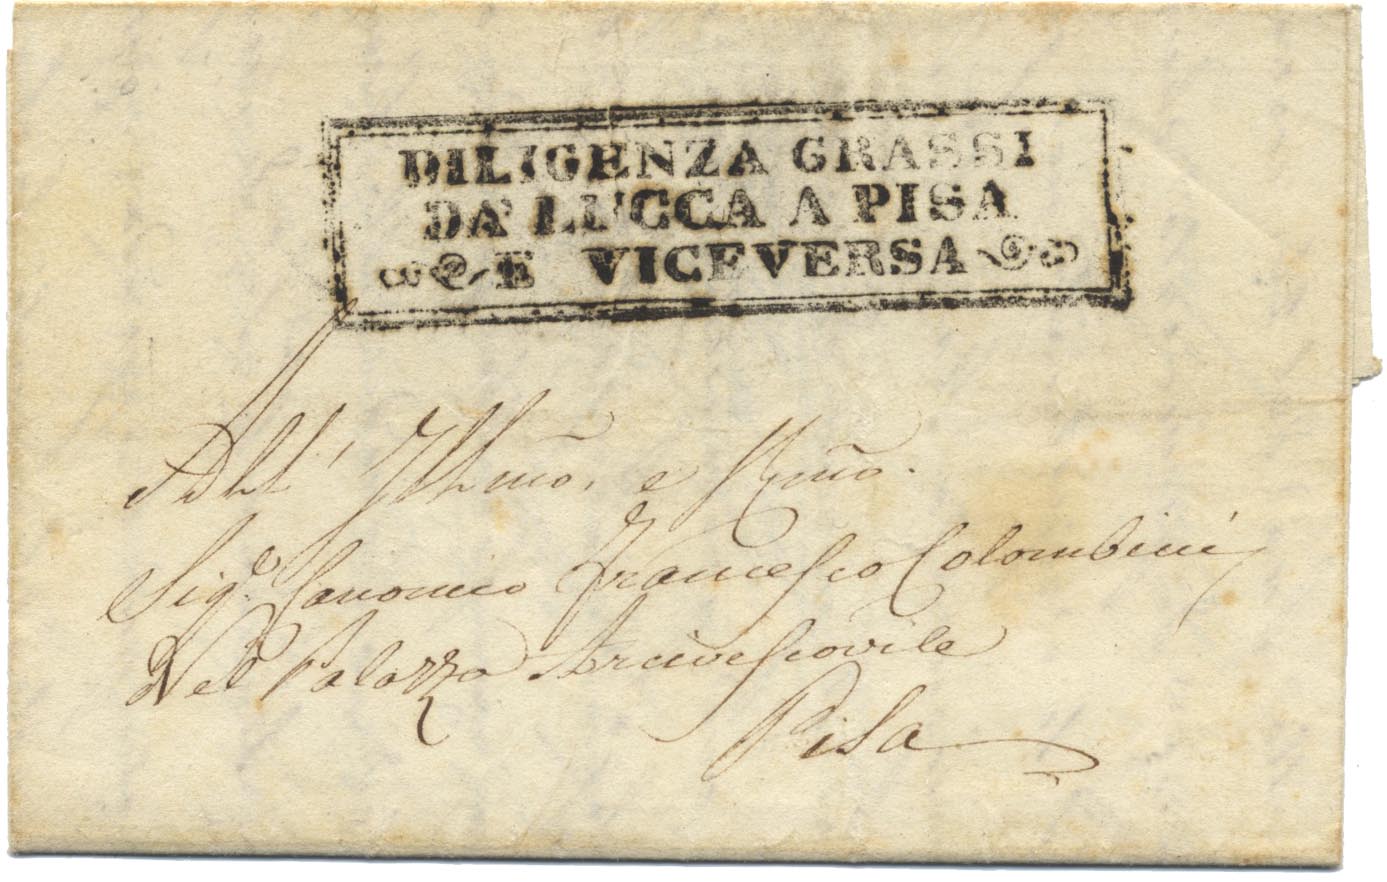 DILIGENZA GRASSI
DA LUCCA A PISA
E VICEVERSA
All' Illmo, e Rmo.
Sigr. Canonico Francesco Colombini
Nel Palazzo Arcivescovile
Pisa